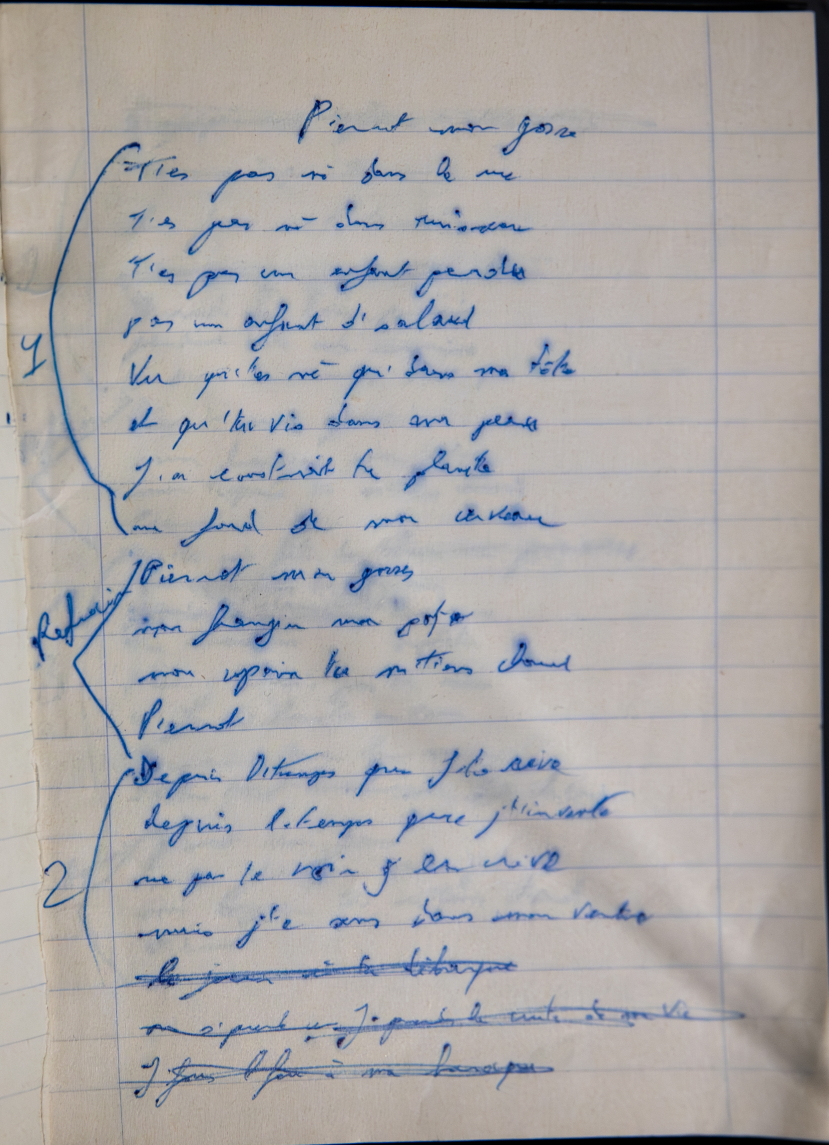 Pierrot mon gosse
T'es pas né dans la rue
T'es pas né dans ruisseau
T'es pas un enfant perdu
pas un enfant d'salaud
Vu qu't'es né qu'dans ma tête
et qu'tu vis dans ma peau
J'ai construit ta planète
au fond de mon cerveau
1
Refrain
Pierrot mon gosse
mon frangin mon poto
mon copain tu m'tiens chaud
Pierrot
2
Depuis l'temps que j'te rêve
depuis l'temps que j't'invente
ne pas te voir j'en crève
mais j'te sens dans mon ventre
le jour où tu débarques
J'prends le reste de ma vie
J fous l'feu à ma baraque